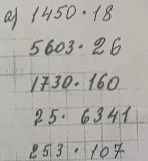 а) 1450 · 18
5603 · 26
1730 · 160
25 · 6341
253 · 107